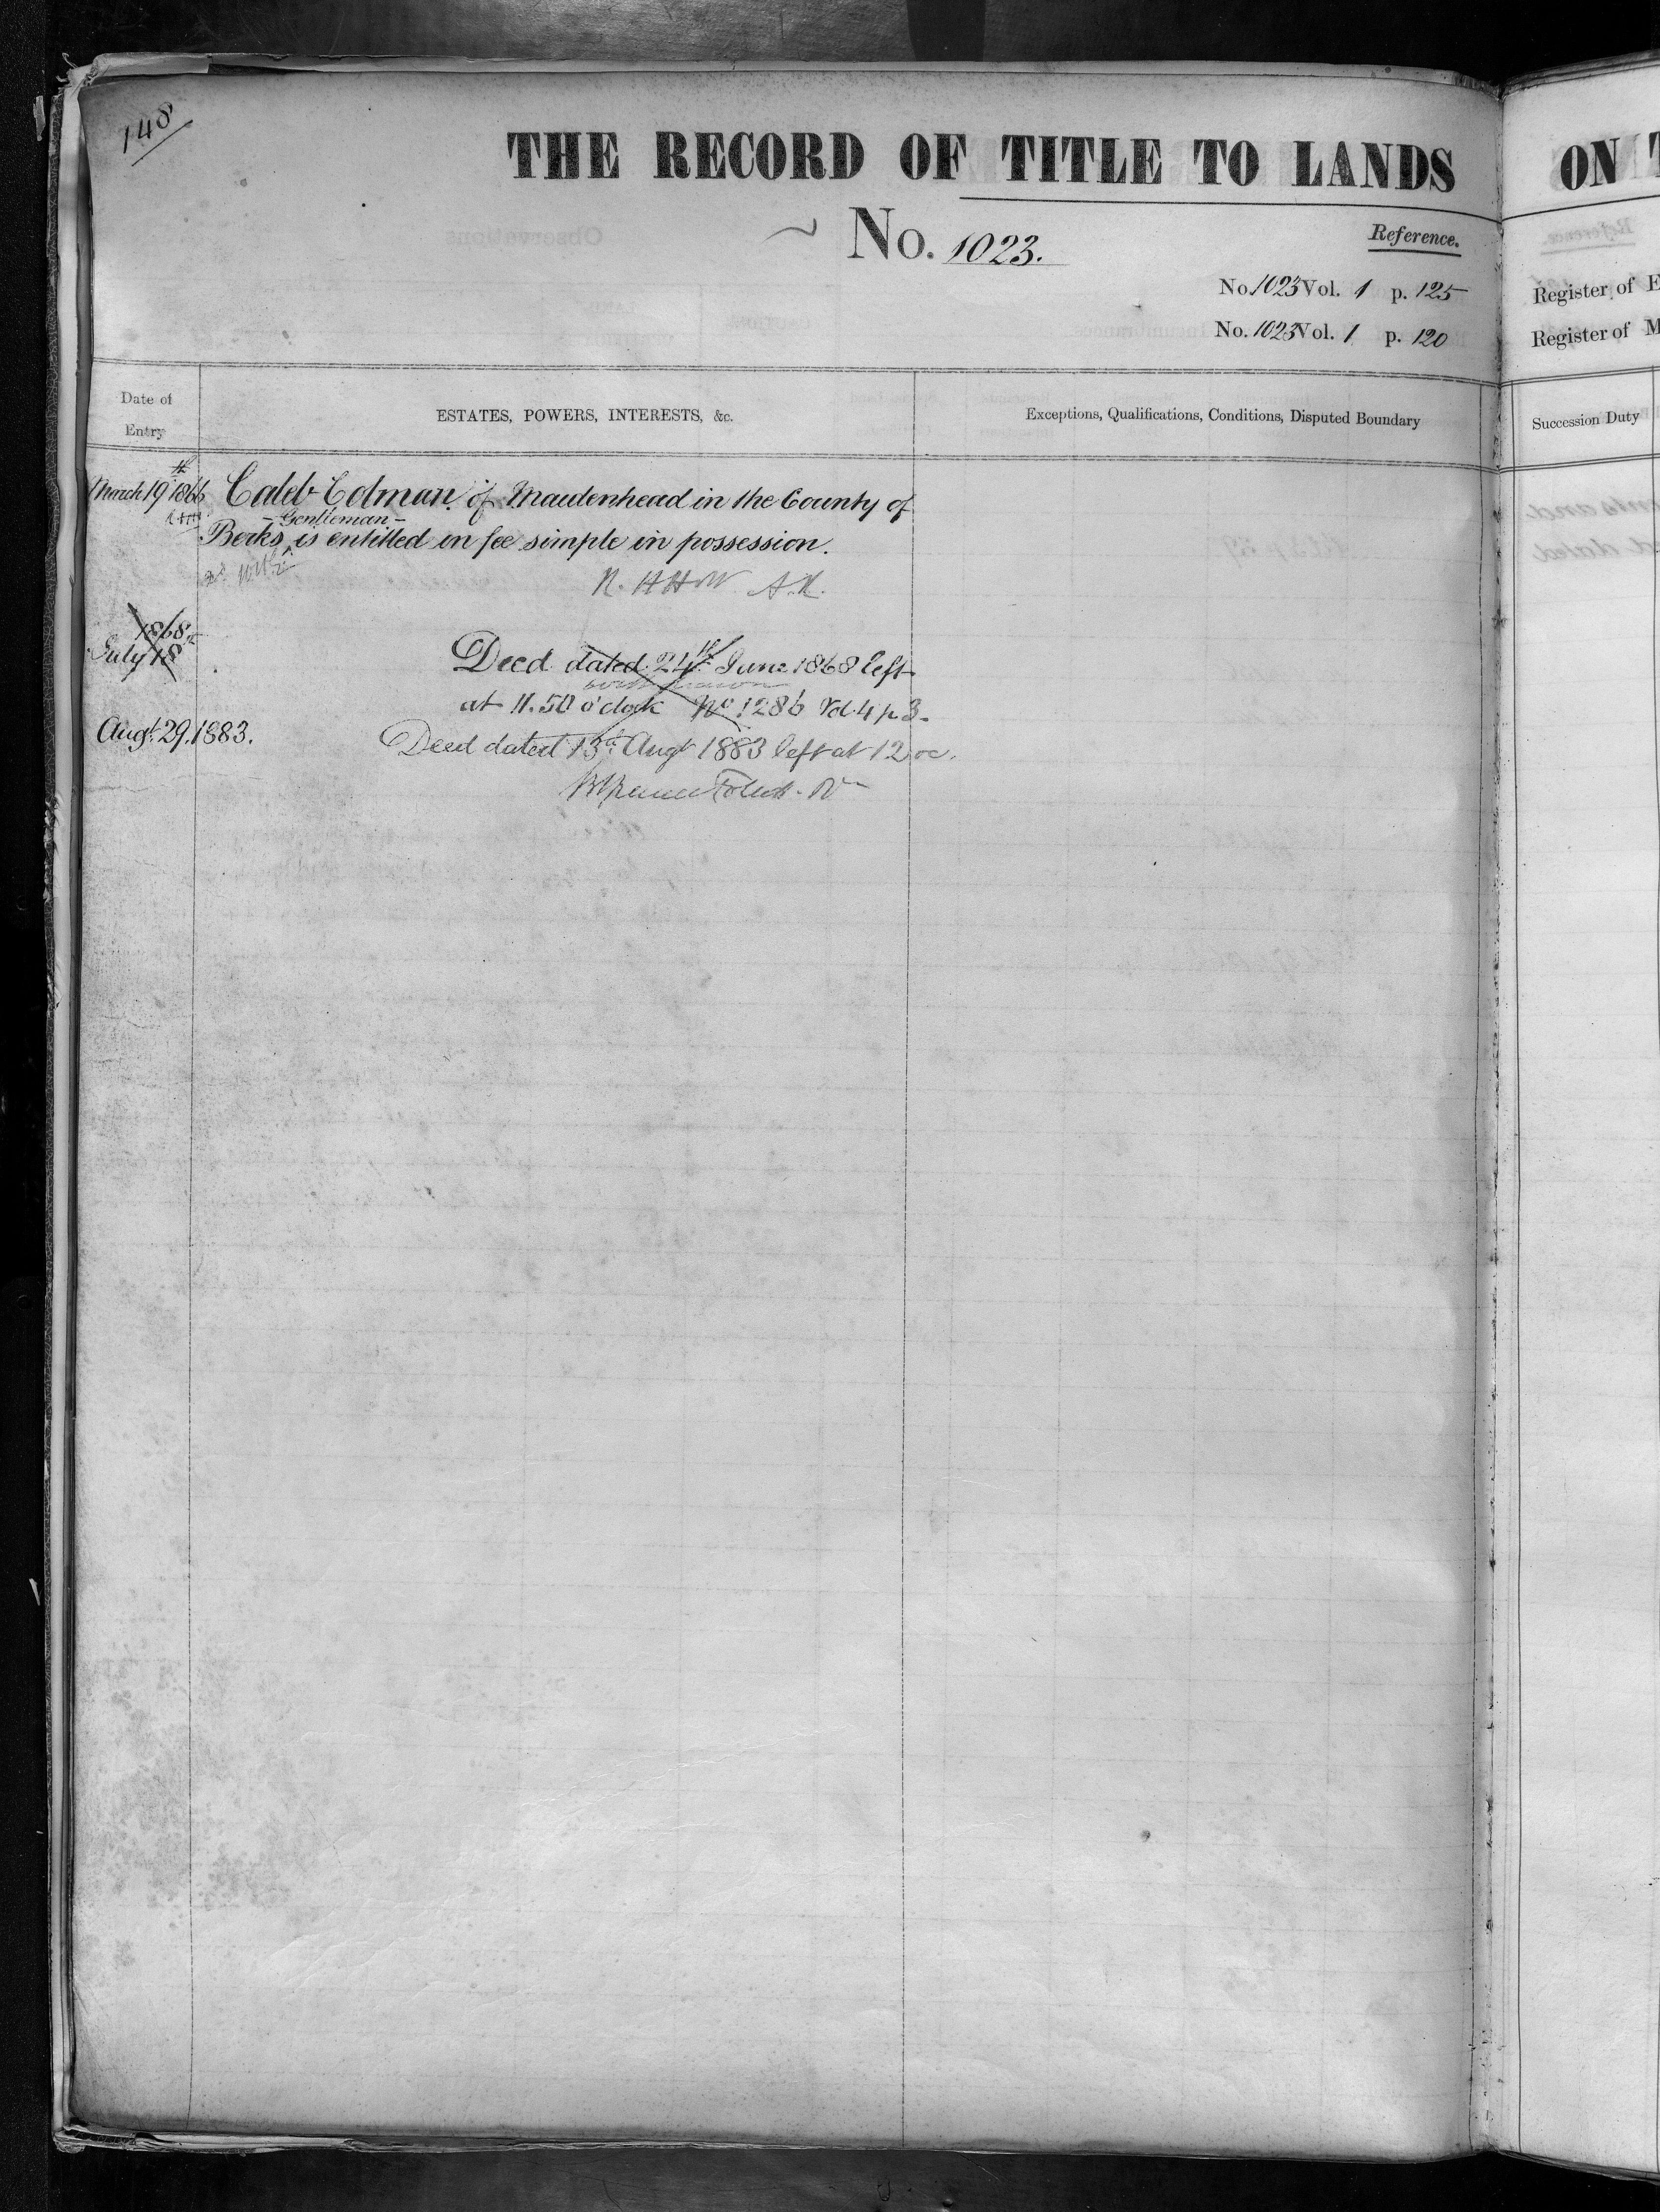 148
THE RECORD OF TITLE TO LANDS
No. 1023.
Reference.
No 1023 Vol. 1 p. 125
No. 1023 Vol. 1 p. 120
Date of Entry
ESTATES, POWERS, INTERESTS, &c.
Exceptions, Qualifications, Conditions, Disputed Boundary
March 19th 1866 Caleb Colman of Maidenhead in the County of
- Gentleman -
Berks, is entitled in fee simple in possession.
1868
July 18
Deed dated 24th June 1868 left
at 11.50 o'clock No 1286 Vol. 4 p 3.
Augt. 29. 1883. Deed dated 13th Augt 1883 left at 12 oc.
ON T
Register of E
Register of M
Succession Duty